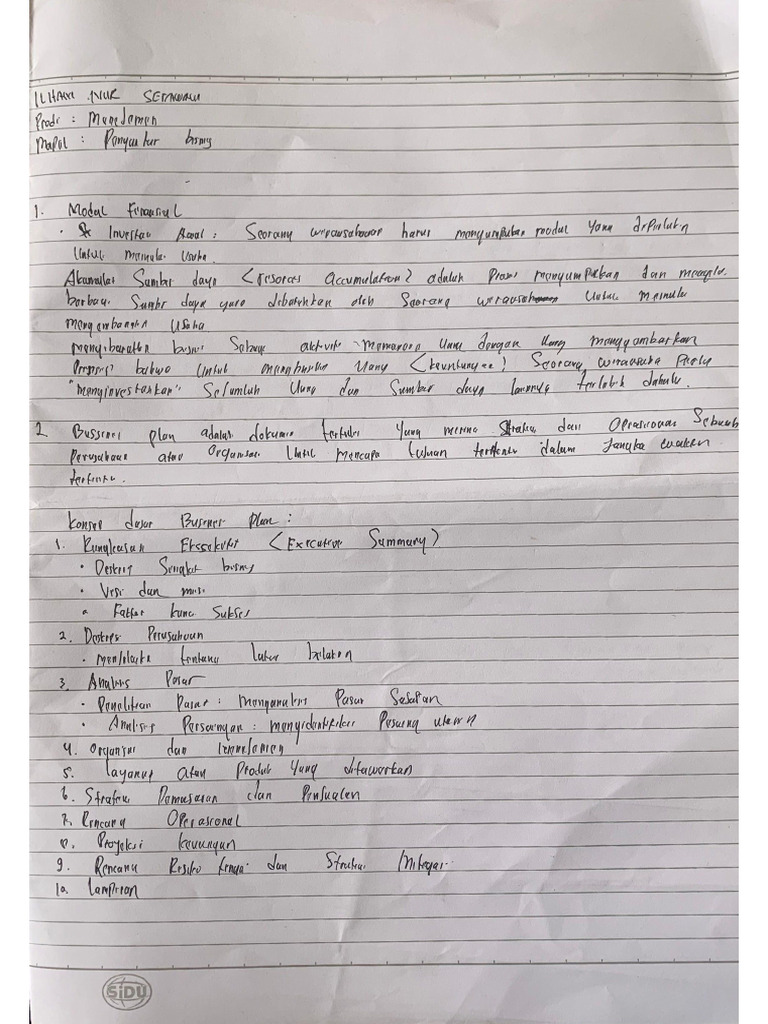 ILHAM NUR SETIAWAN
Prodi : Manajemen
Mapel : Pengantar bisnis
1. Modal Finansial
• Investasi Awal : Seorang wirausahawan harus mengumpulkan modal yang diperlukan
Untuk memulai Usaha.
Akumulasi Sumber daya (resorces Accumulation) adalah Proses mengumpulkan dan mengelola
berbagai Sumber daya yang dibutuhkan oleh Seorang wirausahawan Untuk memulai
mengembangkan Usaha
mengibaratkan bisnis Sebagai aktivitas memancing Uang dengan Uang menggambarkan
bahwa Untuk menghasilkan Uang (keuntungan) Seorang wirausaha Perlu
"menginvestasikan" Sejumlah Uang dan Sumber daya lainnya terlebih dahulu.
2. Bussines plan adalah dokumen tertulis Yang merinci Strategi dan Operasional Sebuah
Perusahaan atau Organisasi Untuk mencapai tujuan tertentu dalam Jangka waktu
tertentu.
Konsep dasar Bussines Plan :
1. Ringkasan Eksekutif (Executive Summary)
• Deskripsi Singkat bisnis
• Visi dan misi
• Faktor kunci Sukses
2. Deskripsi Perusahaan
• Menjelaskan tentang latar belakang
3. Analisis Pasar
• Penelitian Pasar : menganalisis Pasar Sasaran
• Analisis Persaingan : mengidentifikasi Pesaing utama
4. Organisasi dan Manajemen
5. Layanan atau Produk Yang ditawarkan
6. Strategi Pemasaran dan Penjualan
7. Rencana Operasional
8. Proyeksi keuangan
9. Rencana Resiko dan Strategi Mitigasi
10. Lampiran
SiDU